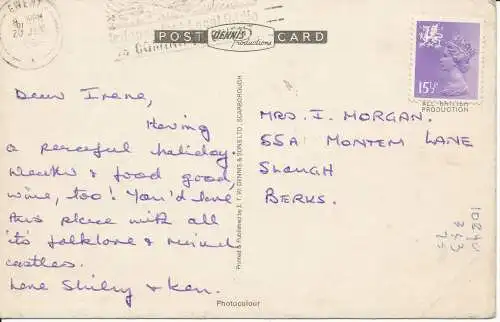 POST CARD
DENNIS
Productions
15½P
ALL BRITISH
PRODUCTION
Dear Irene,
Having
a peaceful holiday.
Weather & food good,
wine, too! You'd love
this place with all
it's folklore & ruined
castles.
Love Shirley & Ken.
Printed & Published by E. T. W. DENNIS & SONS LTD., SCARBOROUGH
MRS. I. MORGAN.
55A MONTEM LANE
SLOUGH
BERKS.
Photocolour